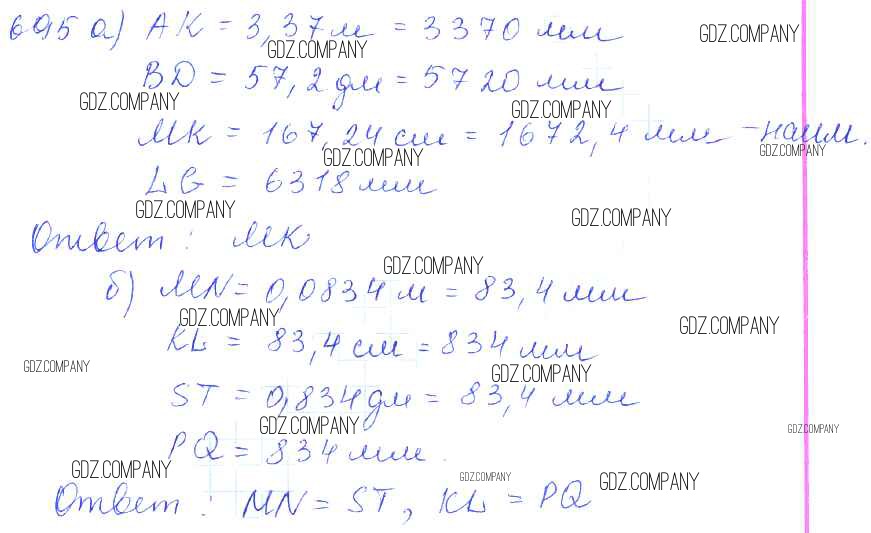 695 а) AK = 3,37 м = 3370 мм
GDZ.COMPANY GDZ.COMPANY
BD = 57,2 дм = 5720 мм
GDZ.COMPANY GDZ.COMPANY
MK = 167,24 см = 1672,4 мм - наим.
GDZ.COMPANY GDZ.COMPANY
LG = 6318 мм
GDZ.COMPANY GDZ.COMPANY
Ответ : MK
GDZ.COMPANY
б) MN = 0,0834 м = 83,4 мм
GDZ.COMPANY GDZ.COMPANY
KL = 83,4 см = 834 мм
GDZ.COMPANY GDZ.COMPANY
ST = 0,834 дм = 83,4 мм
GDZ.COMPANY GDZ.COMPANY
PQ = 834 мм.
GDZ.COMPANY GDZ.COMPANY GDZ.COMPANY
Ответ : MN = ST, KL = PQ